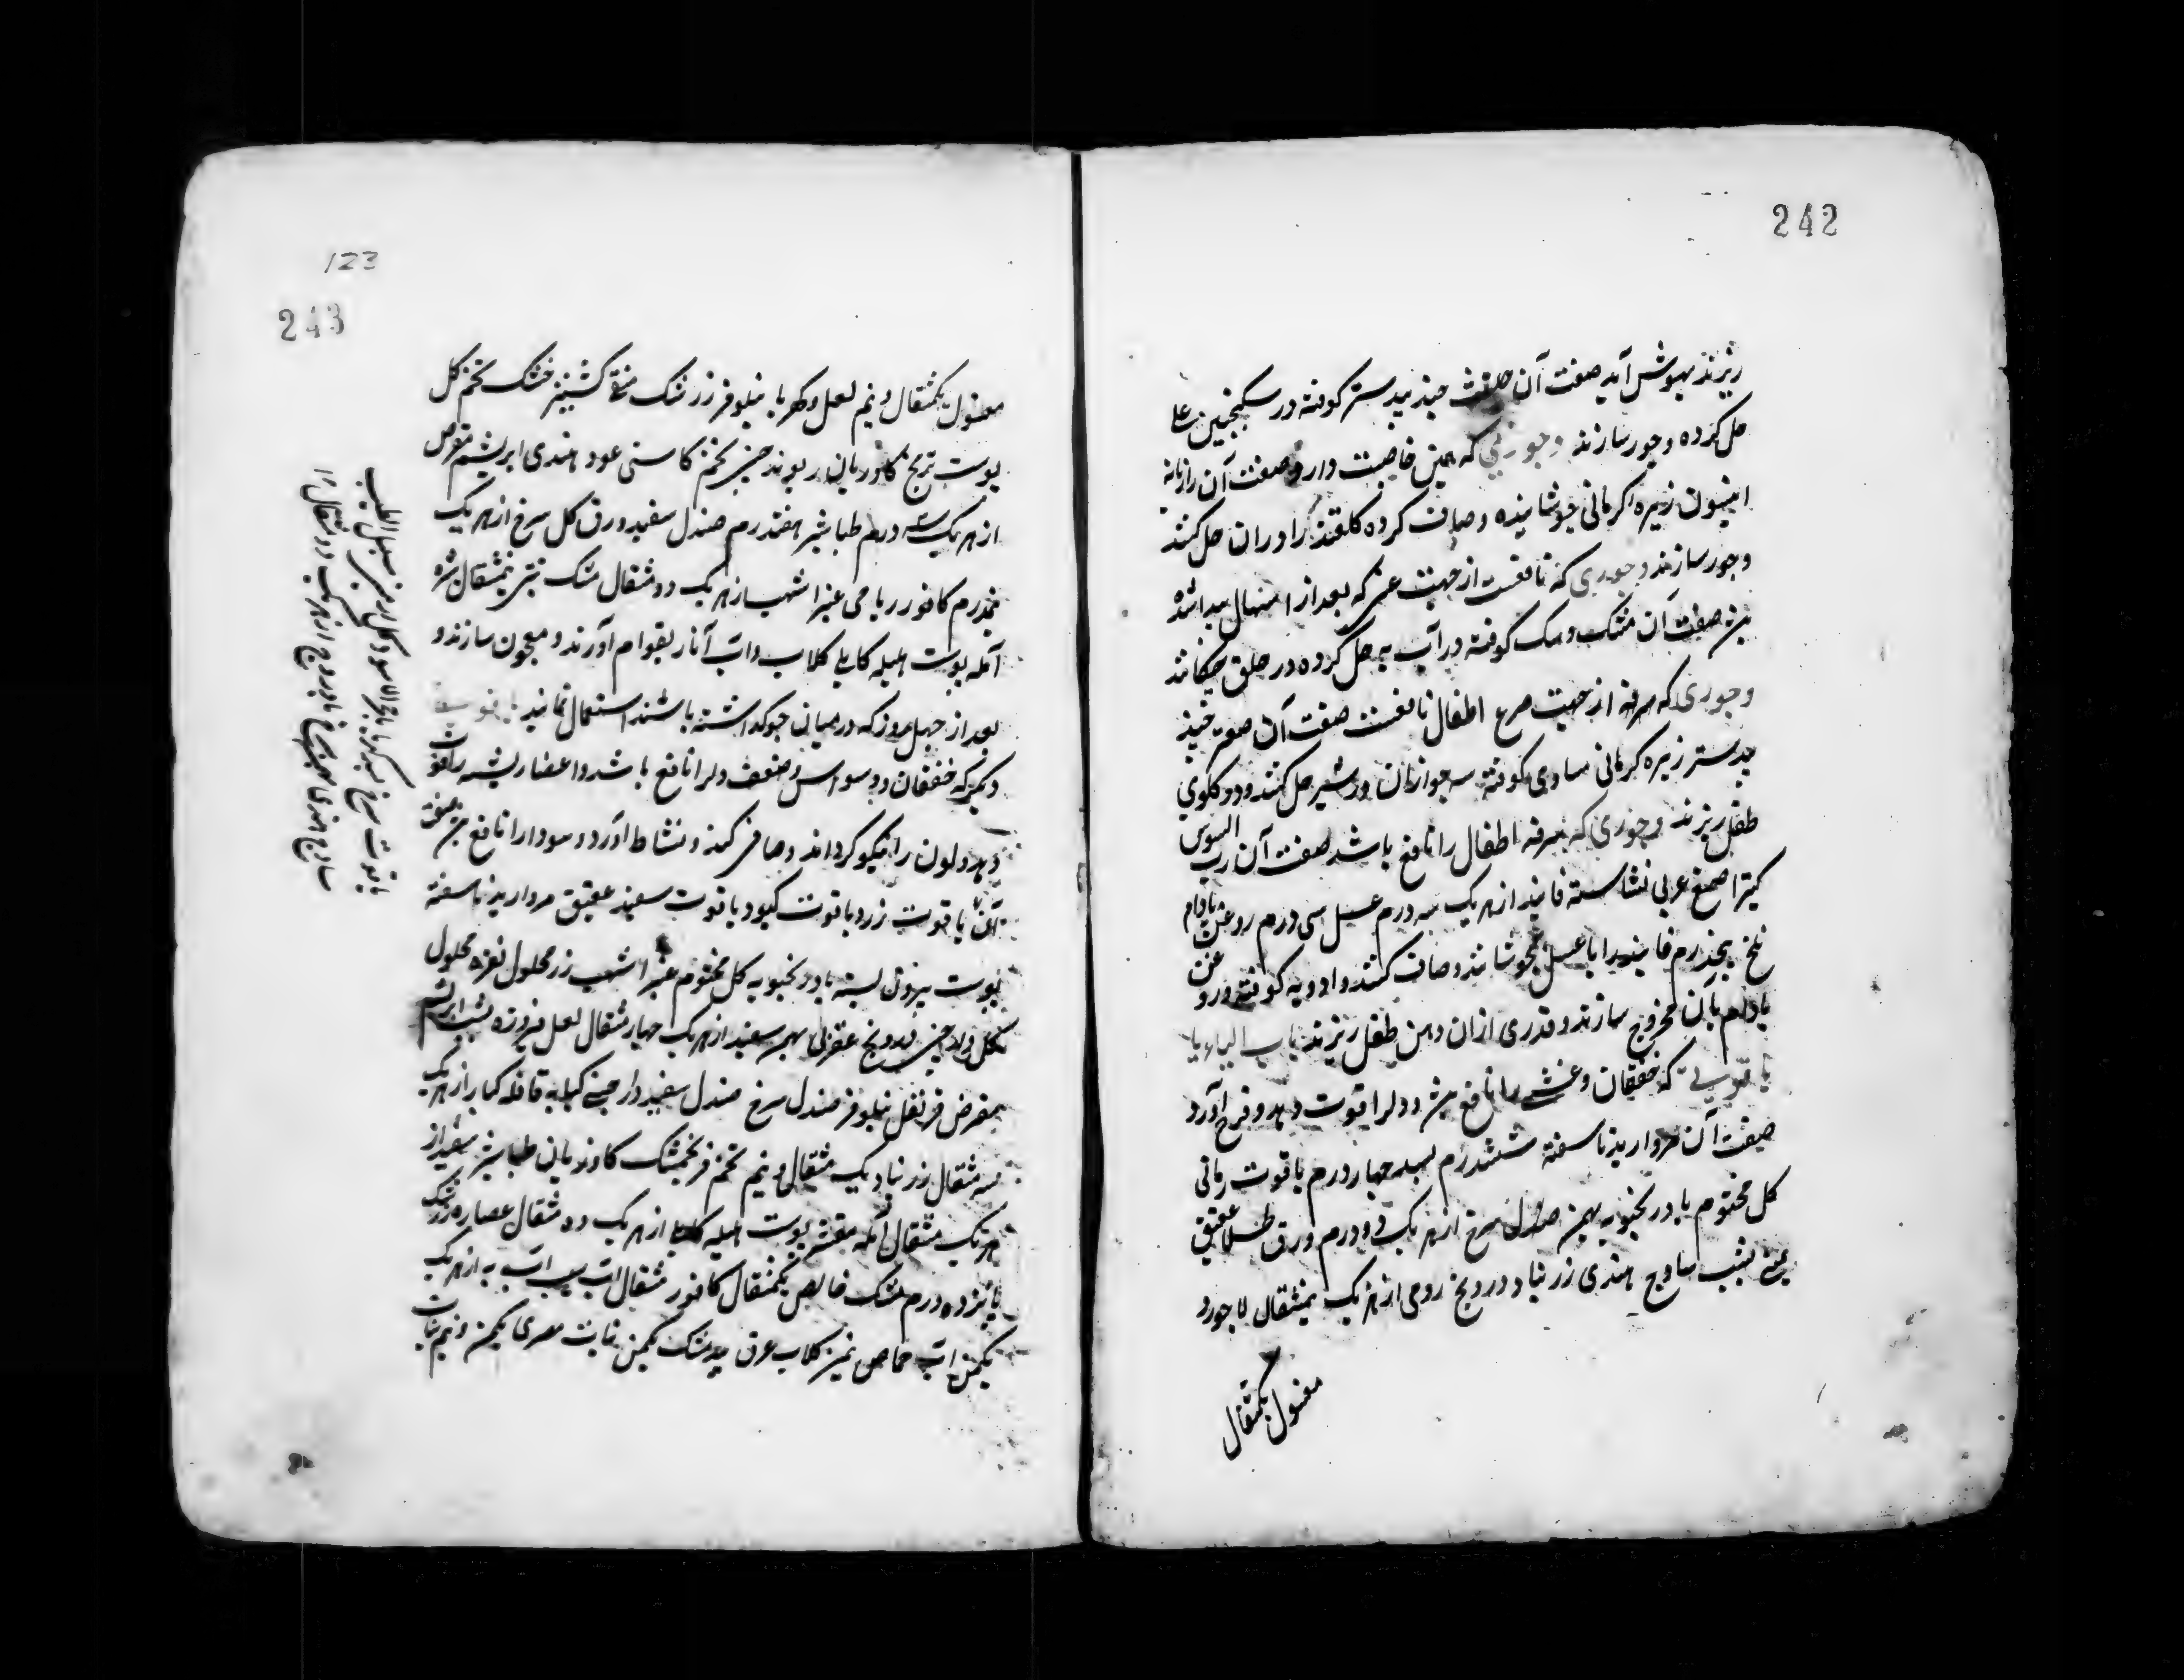 242
ریزند بهوش آید صفت آن حلتیت جند بیدستر کوفته در سکنجبین علی
حل کرده وجور سازند وجوری که همین خاصیت دارد صفت آن رازیانه
انیسون زیره کرمانی جوشانیده و صاف کرده کلقند را در ان حل کنند
وجور سازند وجوری که نافعست از جهت غشی که بعد از اسهال پیدا شده
صفت آن مشک و سک کوفته در آب به حل کرده در حلق چکانند
وجوری که از جهت صرع اطفال نافعست صفت آن صعتر جند
بیدستر زیره کرمانی مساوی کوفته سه جو ازان در شیر حل کنند و در کلوی
طفل ریزند وجوری که سرفه اطفال را نافع باشد صفت آن رب السوس
کتیرا صمغ عربی نشاسته فانید از هر یک سه درم عسل سی درم روغن بادام
تلخ پنجدرم فانید را با عسل بجوشانند و صاف کنند و ادویه کوفته و روغن
بادام بآن مخروج سازند و قدری ازان دهن طفل ریزند باب الیاء یا
یاقوتی که خفقان و غشی را نافع بود و دلرا قوت دهد و فرح آورد
صفت آن مروارید ناسفته ششدرم بسد چهار درم یاقوت رمانی
کل مختوم بادرنجبویه بهمن صندل سرخ از هر یک دو درم ورق طلا عقیق
یمنی یشب ساذج هندی زرنباد درونج رومی از هر یک نیمثقال لاجورد
مغسول یکمثقال
123
243
مغسول یکمثقال و نیم لعل و کهربا نیلوفر زرشک منقی کشنیز خشک تخم کل
پوست ترنج کاوزبان ریوند چینی تخم کاسنی عود هندی ابریشم مقرض
از هر یک سه درم طباشیر هفتدرم صندل سفید ورق کل سرخ از هر یک
پنجدرم کافور ریاحی عنبر اشهب از هر یک دو مثقال مشک تبتی نیمثقال شیره
آمله پوست هلیله کابلی کلاب و آب انار بقوام آورند و معجون سازند و
بعد از چهل روز که در میان جو کذاشته باشند استعمال نمایند
دیکر که خفقان و وسواس و ضعف دلرا نافع باشد و اعضا رئیسه را قوت
دهد و لون را نیکو کرداند و صافی کند و نشاط آورد و سودا را نافع صفت
آن یاقوت زرد یاقوت کبود یاقوت سفید عقیق مروارید ناسفته
پوست بیرون پسته بادرنجبویه کل مختوم عنبر اشهب زر محلول نقره محلول
درونج عقربی بهمن سفید از هر یک چهار مثقال لعل فیروزه یشب ابریشم
بمقرض قرنفل نیلوفر صندل سرخ صندل سفید دارچینی کبابه قاقله کبار از هر یک
سه مثقال زرنباد یک مثقال و نیم تخم فرنجمشک کاوزبان طباشیر سفید از
هر یک مثقال آمله مقشر پوست هلیله کابلی از هر یک ده مثقال عصاره زرشک
پانزده درم مشک خالص یکمثقال کافور مثقال آب سیب آب به از هر یک
یکمن آب حماض نیمن کلاب عرق بیدمشک یکمن نبات مصری یکمن و نیم نبات
یاقوت سرخ کهربا حجرالاسود کل ارمنی سنبل الطیب
ساذج هندی از هر یک دو مثقال